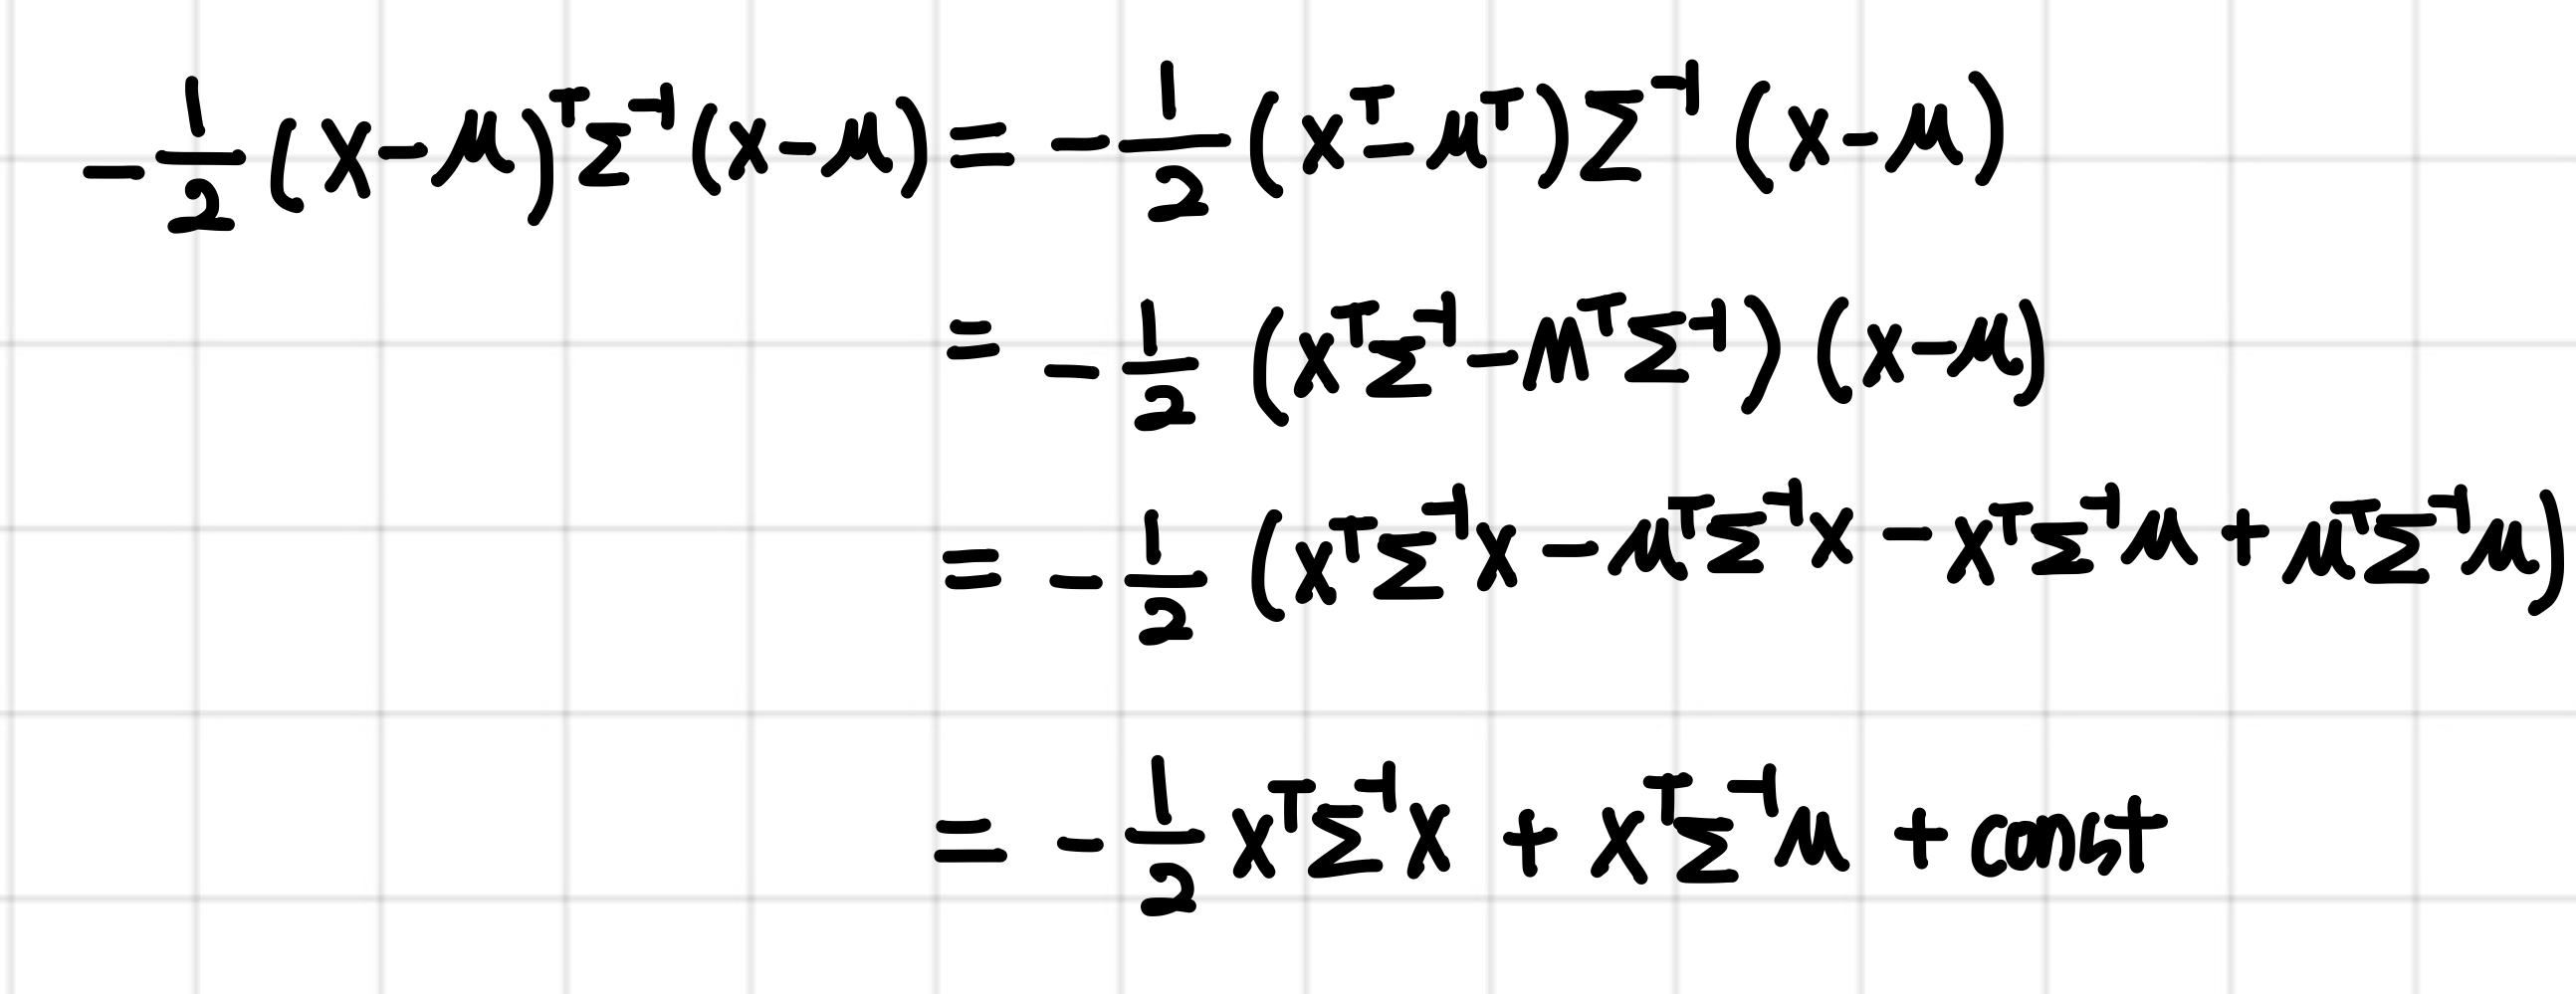 -1/2 (x-μ)ᵀΣ⁻¹(x-μ) = -1/2 (xᵀ-μᵀ)Σ⁻¹(x-μ)
= -1/2 (xᵀΣ⁻¹-μᵀΣ⁻¹)(x-μ)
= -1/2 (xᵀΣ⁻¹x - μᵀΣ⁻¹x - xᵀΣ⁻¹μ + μᵀΣ⁻¹μ)
= -1/2 xᵀΣ⁻¹x + xᵀΣ⁻¹μ + const